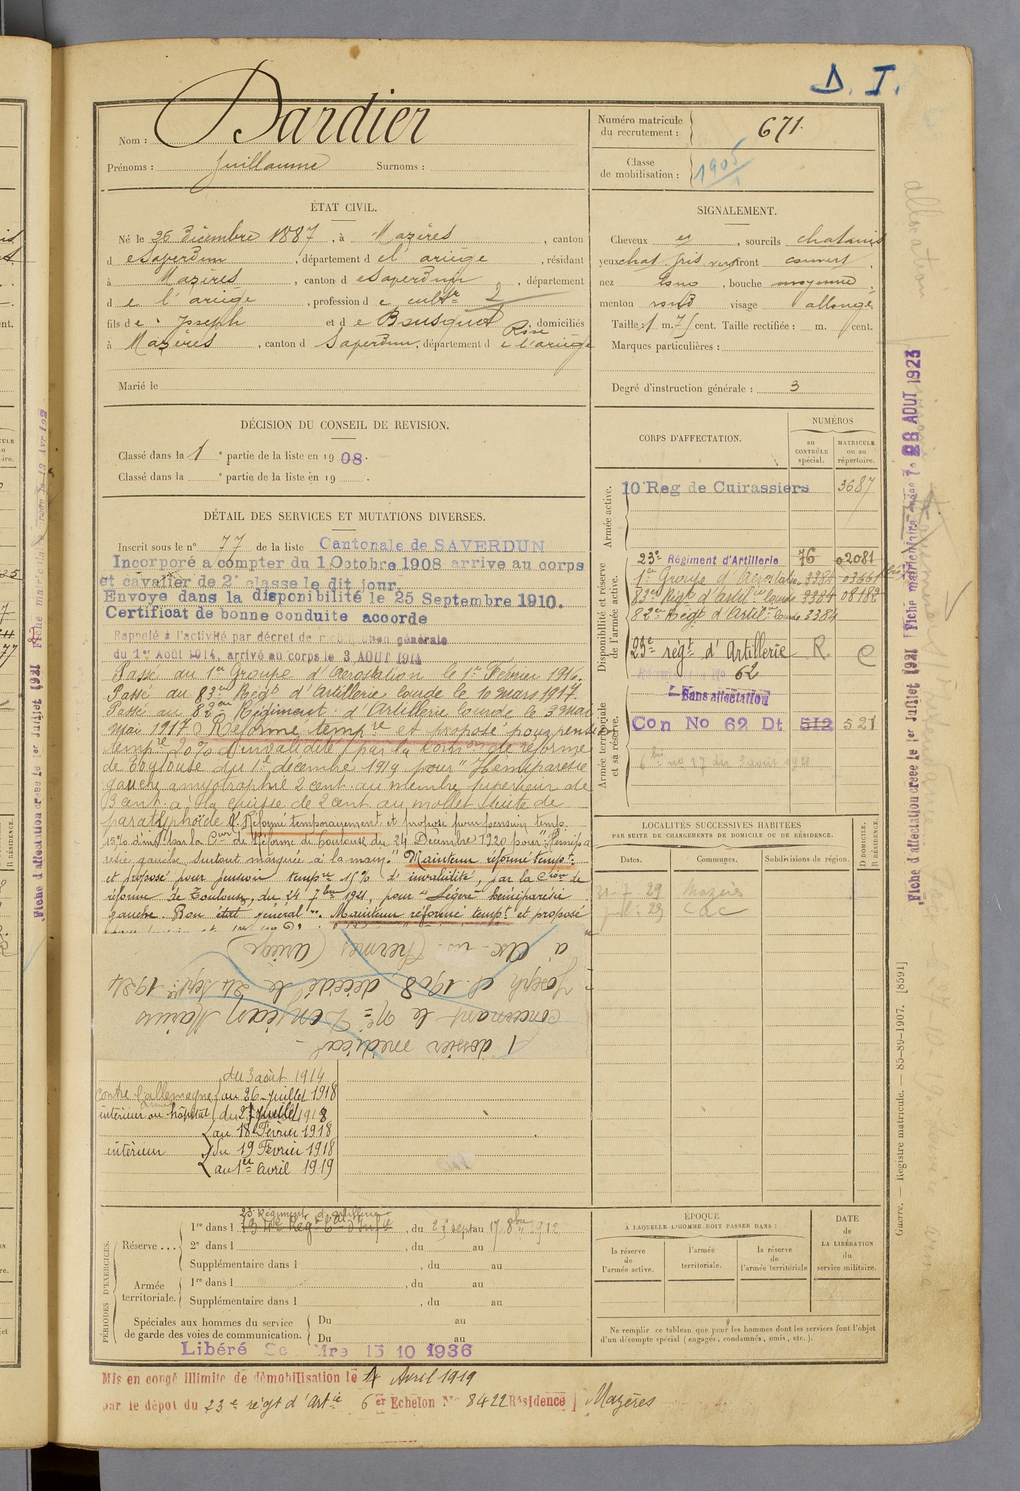 D. I.
Nom : Dardier
Prénoms : Guillaume Surnoms :
Numéro matricule du recrutement : 671.
Classe de mobilisation : 1905
ÉTAT CIVIL.
Né le 26 Décembre 1887, à Mazères, canton
de Saverdun, département de l'ariège, résidant
à Mazères, canton de Saverdun, département
de l'ariège, profession de cultr 2
fils de Joseph et de Bousquet Rose, domiciliés
à Mazères, canton d Saverdun, département de l'ariège
Marié le
SIGNALEMENT.
Cheveux et, sourcils chatains
yeux chat gris front couvert,
nez long, bouche moyenne,
menton rond visage allongé
Taille : 1 m. 71 cent. Taille rectifiée : m. cent.
Marques particulières :
Degré d'instruction générale : 3
DÉCISION DU CONSEIL DE REVISION.
Classé dans la 1e partie de la liste en 1908.
Classé dans la e partie de la liste en 19 .
DÉTAIL DES SERVICES ET MUTATIONS DIVERSES.
Inscrit sous le n° 77 de la liste Cantonale de SAVERDUN
Incorporé a compter du 1 Octobre 1908 arrive au corps
et cavalier de 2e classe le dit jour
Envoye dans la disponibilité le 25 Septembre 1910.
Certificat de bonne conduite accorde
Rappelé à l'activité par décret de mobilisation générale
du 1er Août 1914, arrivé au corps le 3 AOUT 1914
Passé au 1er Groupe d'Aérostation le 1er Février 1916.
Passé au 83me Régt d'Artillerie Lourde le 10 mars 1917
Passé au 82me Régiment d'Artillerie lourde le 3 mai
mai 1917. Réformé tempre et proposé pour
tempre 20% d'invalidité par la Comon de réforme
de Toulouse du 1er décembre 1919 pour "Hémiparésie
gauche amyotraphie 2 cent. au membre supérieur de
3 cent. à la cuisse de 2 cent au mollet suite de
paratyphoïde". Réformé temporairement et proposé pour pension temp.
15% d'invté par la Con de Réforme de Toulouse du 24 Décembre 1920 pour "Hémipa
résie gauche surtout marquée à la main." Maintenu réformé tempre
et proposé pour pension tempre 15% d'invalidité, par la Cion de
réforme de Toulouse, du 24 7bre 1921, pour "Légère hémiparésie
gauche. Bon état général". Maintenu réformé tempre et proposé
1 dossier médical
concernant le né Marius
Joseph cl 1908 décédé le 24 Septre 1924
à Ax-les-Thermes (Ariège)
contre l'allemagne
du 3 août 1914
au 26 Juillet 1918
intérieur ou hôpital
du 27 Juillet 1918
au 18 Février 1918
intérieur
du 19 Février 1918
au 1er Avril 1919
CORPS D'AFFECTATION.
NUMÉROS
AU CONTRÔLE spécial.
MATRICULE ou au répertoire.
Armée active.
10e Reg de Cuirassiers 3687
Disponibilité et réserve de l'armée active.
23e Régiment d'Artillerie 76 02081
1er Groupe d'Aérostation 3384
83me Régt d'Artilie Lourde 3384 08182
82me Régt d'Artilie Lourde 3384
23e regt d'Artillerie R C
62
Armée territoriale et sa réserve.
Sans affectation
Con No 62 Dt 512 521
LOCALITÉS SUCCESSIVES HABITÉES
PAR SUITE DE CHANGEMENTS DE DOMICILE OU DE RÉSIDENCE.
Dates. Communes. Subdivisions de région. D DOMICILE. R RÉSIDENCE.
29 Mazères
PÉRIODES D'EXERCICES.
Réserve ...
23e Régiment d'Artillerie
1re dans l , du 25 sept au 17 8bre 1912
2e dans l , du au
Supplémentaire dans l , du au
Armée territoriale.
1re dans l , du au
Supplémentaire dans l , du au
Spéciales aux hommes du service de garde des voies de communication.
Du au
Du au
Libéré Se Mre 15 10 1936
ÉPOQUE
À LAQUELLE L'HOMME DOIT PASSER DANS :
la réserve de l'armée active.
l'armée territoriale.
la réserve de l'armée territoriale
DATE de LA LIBÉRATION du service militaire.
Ne remplir ce tableau que pour les hommes dont les services font l'objet
d'un décompte spécial (engagés, condamnés, omis, etc.).
Mis en congé illimité de démobilisation le 4 Avril 1919
par le dépôt du 23e régt d'Artie 6er Echelon N° 8422 Résidence Mazères
Guerre. — Registre matricule. — 85-89-1907. [8591]
Fiche d'affectation créée le 1er Juillet 1921
Fiche matriculaire créée le 28 AOUT 1923
Fiche d'affectation créée le 1er Juillet 1921